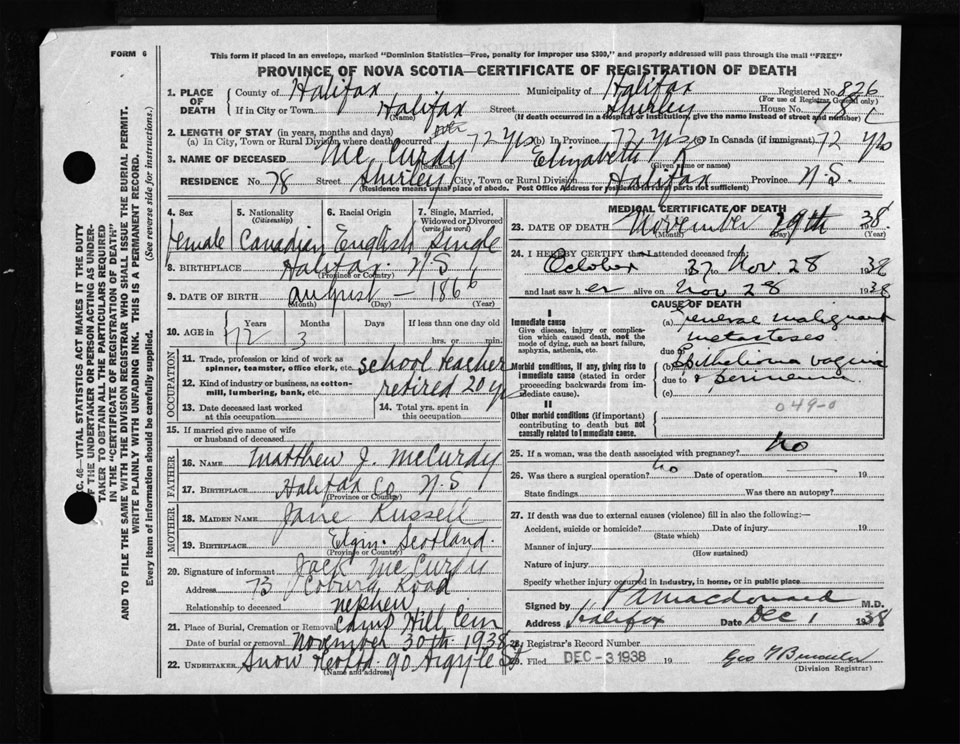 FORM 6
This form if placed in an envelope, marked "Dominion Statistics—Free, penalty for improper use $300," and properly addressed will pass through the mail "FREE"
PROVINCE OF NOVA SCOTIA—CERTIFICATE OF REGISTRATION OF DEATH
1. PLACE OF DEATH County of Halifax Municipality of Halifax Registered No. 826
(For use of Registrar General only)
If in City or Town Halifax Street Shirley House No. 78
(Name) (If death occurred in a hospital or institution, give the name instead of street and number)
2. LENGTH OF STAY (in years, months and days)
(a) In City, Town or Rural Division where death occurred over 72 yrs (b) In Province 72 yrs (c) In Canada (if immigrant) 72 yrs
3. NAME OF DECEASED Mc Curdy Elizabeth J
(Surname) (Given name or names)
RESIDENCE No. 78 Street Shirley City, Town or Rural Division Halifax Province N.S.
(Residence means usual place of abode. Post Office Address for residents in rural parts not sufficient)
4. Sex 5. Nationality (Citizenship) 6. Racial Origin 7. Single, Married, Widowed or Divorced (write the word)
female Canadian English Single
8. BIRTHPLACE Halifax N S
(Province or Country)
9. DATE OF BIRTH August – 1866
(Month) (Day) (Year)
10. AGE in Years Months Days If less than one day old
72 3 hrs. or min.
OCCUPATION
11. Trade, profession or kind of work as spinner, teamster, office clerk, etc. School teacher
12. Kind of industry or business, as cotton-mill, lumbering, bank, etc. retired 20 yrs
13. Date deceased last worked at this occupation 14. Total yrs. spent in this occupation
15. If married give name of wife or husband of deceased
FATHER
16. NAME Matthew J. McCurdy
17. BIRTHPLACE Halifax Co N.S
(Province or Country)
MOTHER
18. MAIDEN NAME Jane Russell
19. BIRTHPLACE Elgin Scotland.
(Province or Country)
20. Signature of informant Jack McCurdy
Address 73 Coburg Road
Relationship to deceased nephew
21. Place of Burial, Cremation or Removal Camp Hill Cem
Date of burial or removal November 30th 1938
22. UNDERTAKER Snow 90 Argyle St
(Name and address)
MEDICAL CERTIFICATE OF DEATH
23. DATE OF DEATH November 29th 1938
(Month) (Day) (Year)
24. I HEREBY CERTIFY that I attended deceased from:
October 1937 to Nov. 28 1938
and last saw her alive on Nov 28 1938
CAUSE OF DEATH
I
Immediate cause
Give disease, injury or complication which caused death, not the mode of dying, such as heart failure, asphyxia, asthenia, etc.
(a) General malignant metastases
due to
Morbid conditions, if any, giving rise to immediate cause (stated in order proceeding backwards from immediate cause).
(b) Epithelioma vagina
due to & perineum
(c)
049-0
II
Other morbid conditions (if important) contributing to death but not causally related to immediate cause.
25. If a woman, was the death associated with pregnancy? No
26. Was there a surgical operation? no Date of operation 19
State findings Was there an autopsy?
27. If death was due to external causes (violence) fill in also the following:—
Accident, suicide or homicide? Date of injury 19
(State which)
Manner of injury
(How sustained)
Nature of injury
Specify whether injury occurred in industry, in home, or in public place
Signed by Macdonald M.D.
Address Halifax Date Dec 1 1938
28. Registrar's Record Number
29. Filed DEC - 3 1938 19 Geo
(Division Registrar)
C. 46—VITAL STATISTICS ACT MAKES IT THE DUTY
OF THE UNDERTAKER OR PERSON ACTING AS UNDERTAKER TO OBTAIN ALL THE PARTICULARS REQUIRED
IN THE "CERTIFICATE OF REGISTRATION OF DEATH"
AND TO FILE THE SAME WITH THE DIVISION REGISTRAR WHO SHALL ISSUE THE BURIAL PERMIT.
WRITE PLAINLY WITH UNFADING INK. THIS IS A PERMANENT RECORD.
Every item of information should be carefully supplied. (See reverse side for instructions.)